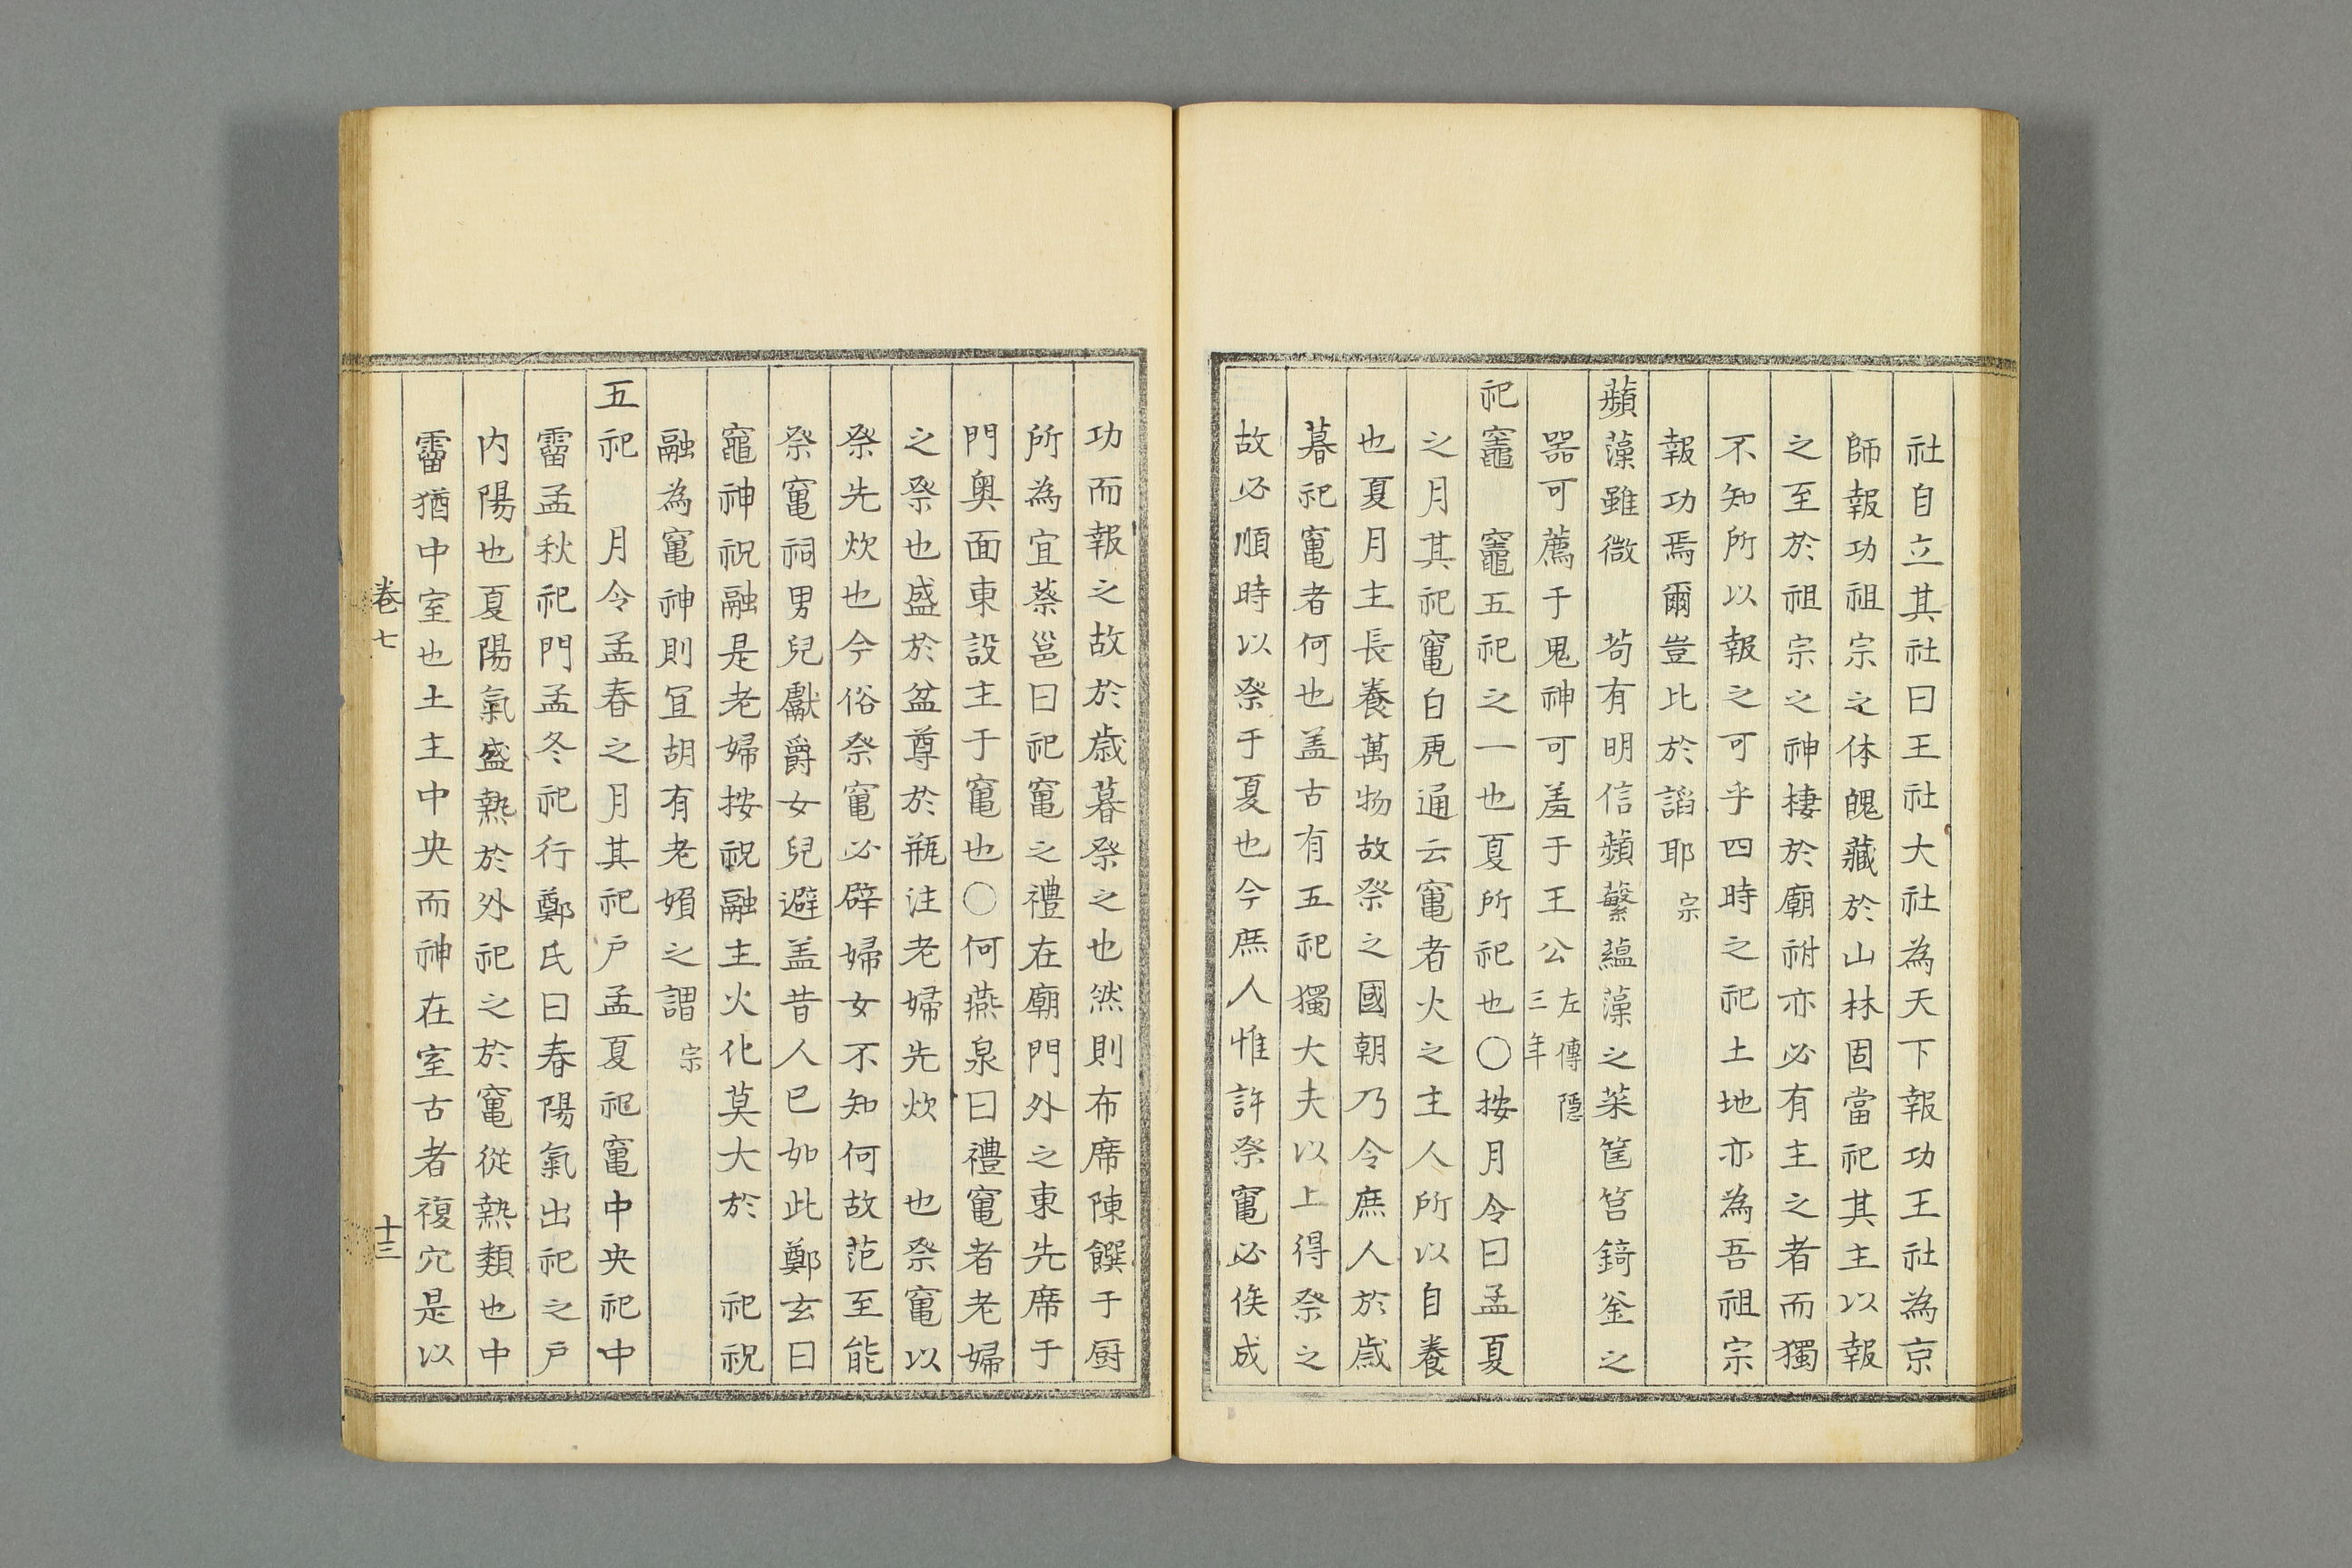 社自立其社曰王社大社為天下報功王社為京
師報功祖宗之体魄藏於山林固當祀其主以報
之至於祖宗之神棲於廟祔亦必有主之者而獨
不知所以報之可乎四時之祀土地亦為吾祖宗
報功焉爾豈比於謟耶 宗
蘋藻雖微 苟有明信蘋蘩蘊藻之菜筐筥錡釜之
器可薦于鬼神可羞于王公 左傳隱三年
祀竈 竈五祀之一也夏所祀也〇按月令曰孟夏
之月其祀竃白虎通云竃者火之主人所以自養
也夏月主長養萬物故祭之國朝乃令庶人於歲
暮祀竃者何也盖古有五祀獨大夫以上得祭之
故必順時以祭于夏也今庶人惟許祭竃必俟成
功而報之故於歲暮祭之也然則布席陳饌于厨
所為宜蔡邕曰祀竃之禮在廟門外之東先席于
門奥面東設主于竃也〇何燕泉曰禮竃者老婦
之祭也盛於盆尊於瓶注老婦先炊 也祭竃以
祭先炊也今俗祭竃必辟婦女不知何故范至能
祭竃祠男兒獻爵女兒避盖昔人已如此鄭玄曰
竈神祝融是老婦按祝融主火化莫大於 祀祝
融為竃神則冝胡有老媍之謂 宗
五祀 月令孟春之月其祀户孟夏祀竃中央祀中
霤孟秋祀門孟冬祀行鄭氏曰春陽氣出祀之户
内陽也夏陽氣盛熱於外祀之於竃從熱類也中
霤猶中室也土主中央而神在室古者複穴是以
卷七
十三